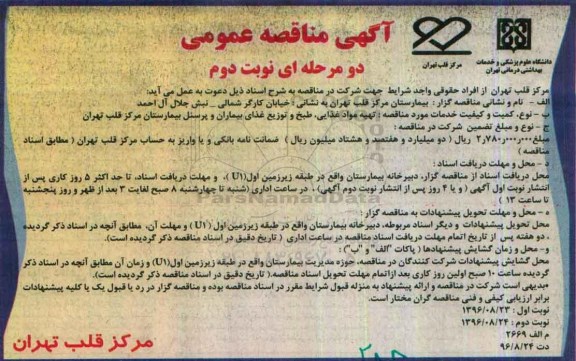 آگهی مناقصه عمومی
دو مرحله ای نوبت دوم
مرکز قلب تهران
دانشگاه علوم پزشکی و خدمات
بهداشتی درمانی تهران
مرکز قلب تهران از افراد حقوقی واجد شرایط جهت شرکت در مناقصه به شرح اسناد ذیل دعوت به عمل می آید:
الف - نام و نشانی مناقصه گزار : بیمارستان مرکز قلب تهران به نشانی : خیابان کارگر شمالی _ نبش جلال آل احمد
ب - نوع، کمیت و کیفیت خدمات مورد مناقصه : تهیه مواد غذایی، طبخ و توزیع غذای بیماران و پرسنل بیمارستان مرکز قلب تهران
ج - نوع و مبلغ تضمین شرکت در مناقصه :
مبلغ ۲٫۷۸۰٫۰۰۰٫۰۰۰ ریال ( دو میلیارد و هفتصد و هشتاد میلیون ریال ) ضمانت نامه بانکی و یا واریز به حساب مرکز قلب تهران ( مطابق اسناد
مناقصه )
د - محل و مهلت دریافت اسناد :
محل دریافت اسناد از مناقصه گزار، دبیرخانه بیمارستان واقع در طبقه زیرزمین اول (U۱)، و مهلت دریافت اسناد، تا حد اکثر ۵ روز کاری پس از
انتشار نوبت اول آگهی ( و یا ۴ روز پس از انتشار نوبت دوم آگهی) ، در ساعت اداری (شنبه تا چهارشنبه ۸ صبح لغایت ۳ بعد از ظهر و روز پنجشنبه
تا ساعت ۱۳ )
ه - محل و مهلت تحویل پیشنهادات به مناقصه گزار
محل تحویل پیشنهادات و دیگر اسناد مربوطه، دبیرخانه بیمارستان واقع در طبقه زیرزمین اول (U۱) و مهلت آن، مطابق آنچه در اسناد ذکر گردیده
، دو هفته پس از تاریخ اتمام مهلت دریافت اسناد مناقصه در ساعت اداری ( تاریخ دقیق در اسناد مناقصه ذکر گردیده است).
و - محل و زمان گشایش پیشنهادها ( پاکات "الف" و "ب") :
محل گشایش پیشنهادات شرکت کنندگان در مناقصه، حوزه مدیریت بیمارستان واقع در طبقه زیرزمین اول(U۱) و زمان آن مطابق آنچه در اسناد ذکر
گردیده ساعت ۱۰ صبح اولین روز کاری بعد از اتمام مهلت تحویل اسناد مناقصه.( تاریخ دقیق در اسناد مناقصه ذکر گردیده است).
•بدیهی است شرکت در مناقصه و ارائه پیشنهاد به منزله قبول شرایط مقرر در اسناد مناقصه بوده و مناقصه گزار در رد یا قبول یک یا کلیه پیشنهادات
برابر ارزیابی کیفی و فنی مناقصه گران مختار است.
نوبت اول : ۱۳۹۶/۰۸/۲۳
نوبت دوم : ۱۳۹۶/۰۸/۲۴
م الف ۲۶۶۹
دت ۹۶/۸/۲۴
مرکز قلب تهران
ParsNamadData